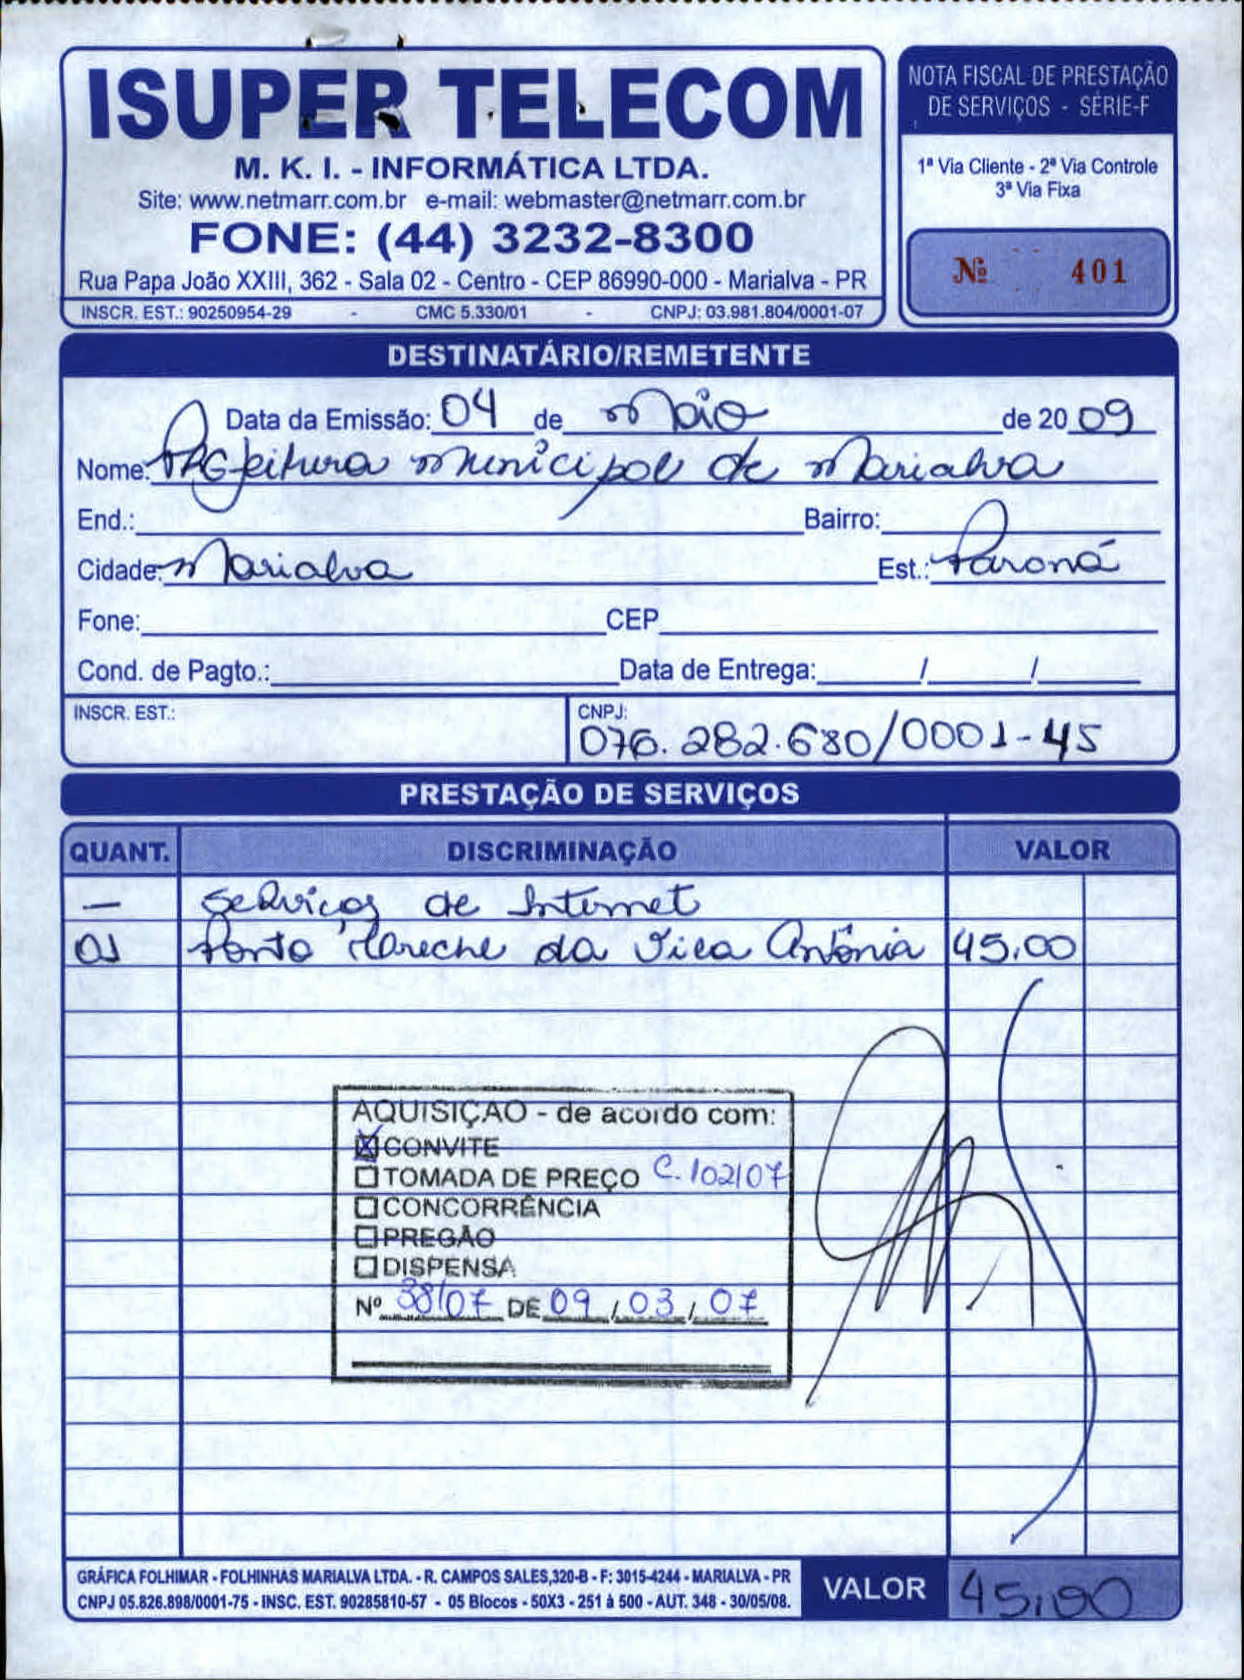 ISUPER TELECOM
M. K. I. - INFORMÁTICA LTDA.
Site: www.netmarr.com.br e-mail: webmaster@netmarr.com.br
FONE: (44) 3232-8300
Rua Papa João XXIII, 362 - Sala 02 - Centro - CEP 86990-000 - Marialva - PR
INSCR. EST.: 90250954-29 - CMC 5.330/01 - CNPJ: 03.981.804/0001-07
NOTA FISCAL DE PRESTAÇÃO
DE SERVIÇOS - SÉRIE-F
1ª Via Cliente - 2ª Via Controle
3ª Via Fixa
Nº 401
DESTINATÁRIO/REMETENTE
Data da Emissão: 04 de Maio de 2009
Nome: Prefeitura Municipal de Marialva
End.: Bairro:
Cidade: Marialva Est.: Paraná
Fone: CEP
Cond. de Pagto.: Data de Entrega: / /
INSCR. EST.: CNPJ:
076.282.680/0001-45
PRESTAÇÃO DE SERVIÇOS
QUANT. DISCRIMINAÇÃO VALOR
— Serviços de Internet
01 Ponto da Vila Antônia 45,00
AQUISIÇÃO - de acordo com:
CONVITE
TOMADA DE PREÇO C. 102/07
CONCORRÊNCIA
PREGÃO
DISPENSA
Nº 38/07 DE 09 / 03 / 07
GRÁFICA FOLHIMAR - FOLHINHAS MARIALVA LTDA. - R. CAMPOS SALES,320-B - F: 3015-4244 - MARIALVA - PR
CNPJ 05.826.898/0001-75 - INSC. EST. 90285810-57 - 05 Blocos - 50X3 - 251 à 500 - AUT. 348 - 30/05/08.
VALOR 45,00